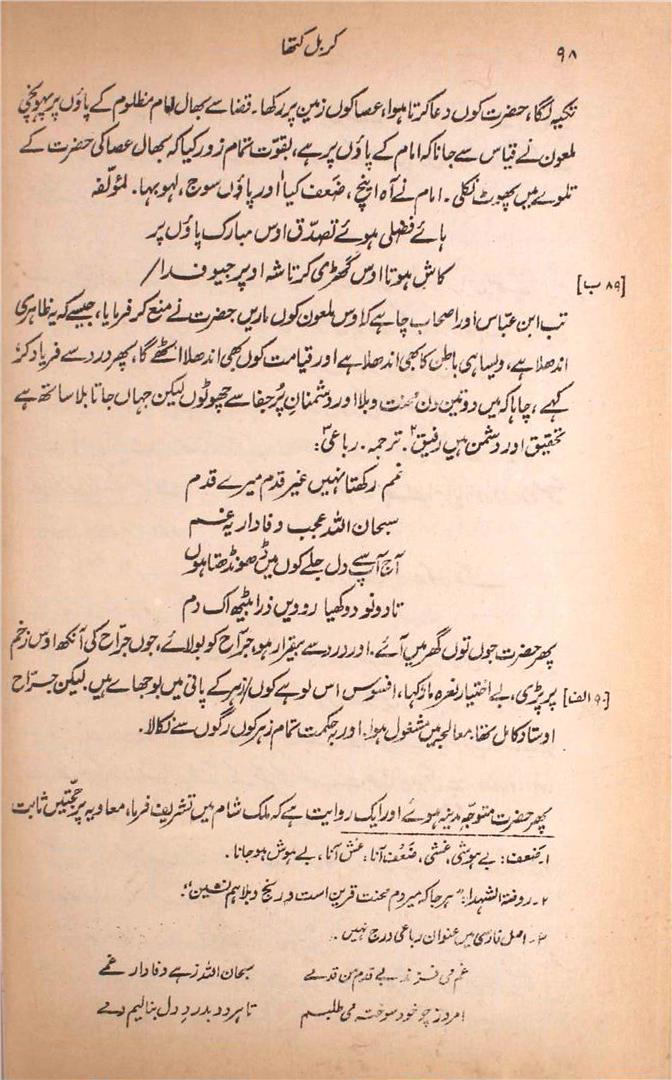 ۹۸ کربل کتھا
تکیہ لگا، حضرت کوں دعا کرتا ہوا، عصا کوں زمین پر رکھا۔ قضا سے بھال امام مظلوم کے پاؤں پر پہونچی
ملعون نے قیاس سے جانا کہ امام کے پاؤں پر ہے، بقوّت تمام زور کیا کہ بھال عصا کی حضرت کے
تلوے میں پھوٹ نکلی۔ امام نے آہ اینچ، ضَعف کیا۱ اور پاؤں سوج، لہو بہا۔ لمؤلّفہ
ہائے فضلی ہوئے تصدّق اوس مبارک پاؤں پر
کاش ہوتا اوس گھڑی کرتا شہ اوپر جیو فدا/
[۸۹ ب]
تب ابن عبّاس اور اصحاب چاہے کہ اوس ملعون کوں ماریں حضرت نے منع کر فرمایا، جیسے کہ یہ ظاہری
اندھلا ہے، ویسا ہی باطن کا بھی اندھلا ہے اور قیامت کوں بھی اندھلا اٹھے گا، پھر درد سے فریاد کر
کہے، چاہا کہ میں دو تین دن محنت و بلا اور دشمنانِ پُر جفا سے چھوٹوں لیکن جہاں جاتا بلا ساتھ ہے
تحقیق اور دشمن ہیں رفیق۲۔ ترجمہ۔ رباعی۳:
غم رکھتا نہیں غیر قدم میرے قدم
سبحان اللہ عجب وفادار یہ غم
آج آپ سے دل جلے کوں میں ڈھونڈھتا ہوں
تا دونو دوکھیا روویں ذرا بیٹھ اک دم
پھر حضرت جوں توں گھر میں آئے۔ اور درد سے بیقرار ہو، جرّاح کو بولائے، جوں جرّاح کی آنکھ اوس زخم
پر پڑی، بے اختیار نعرہ مار کہا، افسوس اس لوہے کوں/زہر کے پانی میں بوجھاے ہیں۔ لیکن جرّاح [۹۰ الف]
اوستاد کامل تھا۔ معالجہ میں مشغول ہوا۔ اور بہ حکمت تمام زہر کوں رگوں سے نکالا۔
پھر حضرت متوجّہ مدینہ ہوے اور ایک روایت ہے کہ ملک شام میں تشریف فرما، معاویہ پر حجّتیں ثابت
۱۔ ضَعف: بے ہوشی، غشی، ضَعف آنا: غش آنا، بے ہوش ہو جانا۔
۲۔ روضۃ الشہدا: "ہر جا کہ میروم محنت قرین است و رنج و بلا ہم نشین"۔
۳۔ اصل فارسی میں عنوان رباعی درج نہیں۔
سبحان اللہ زہے وفادار غمے
امروز چو خود سوختہ می طلبم تا ہر دو بدردِ دل بنالیم دمے